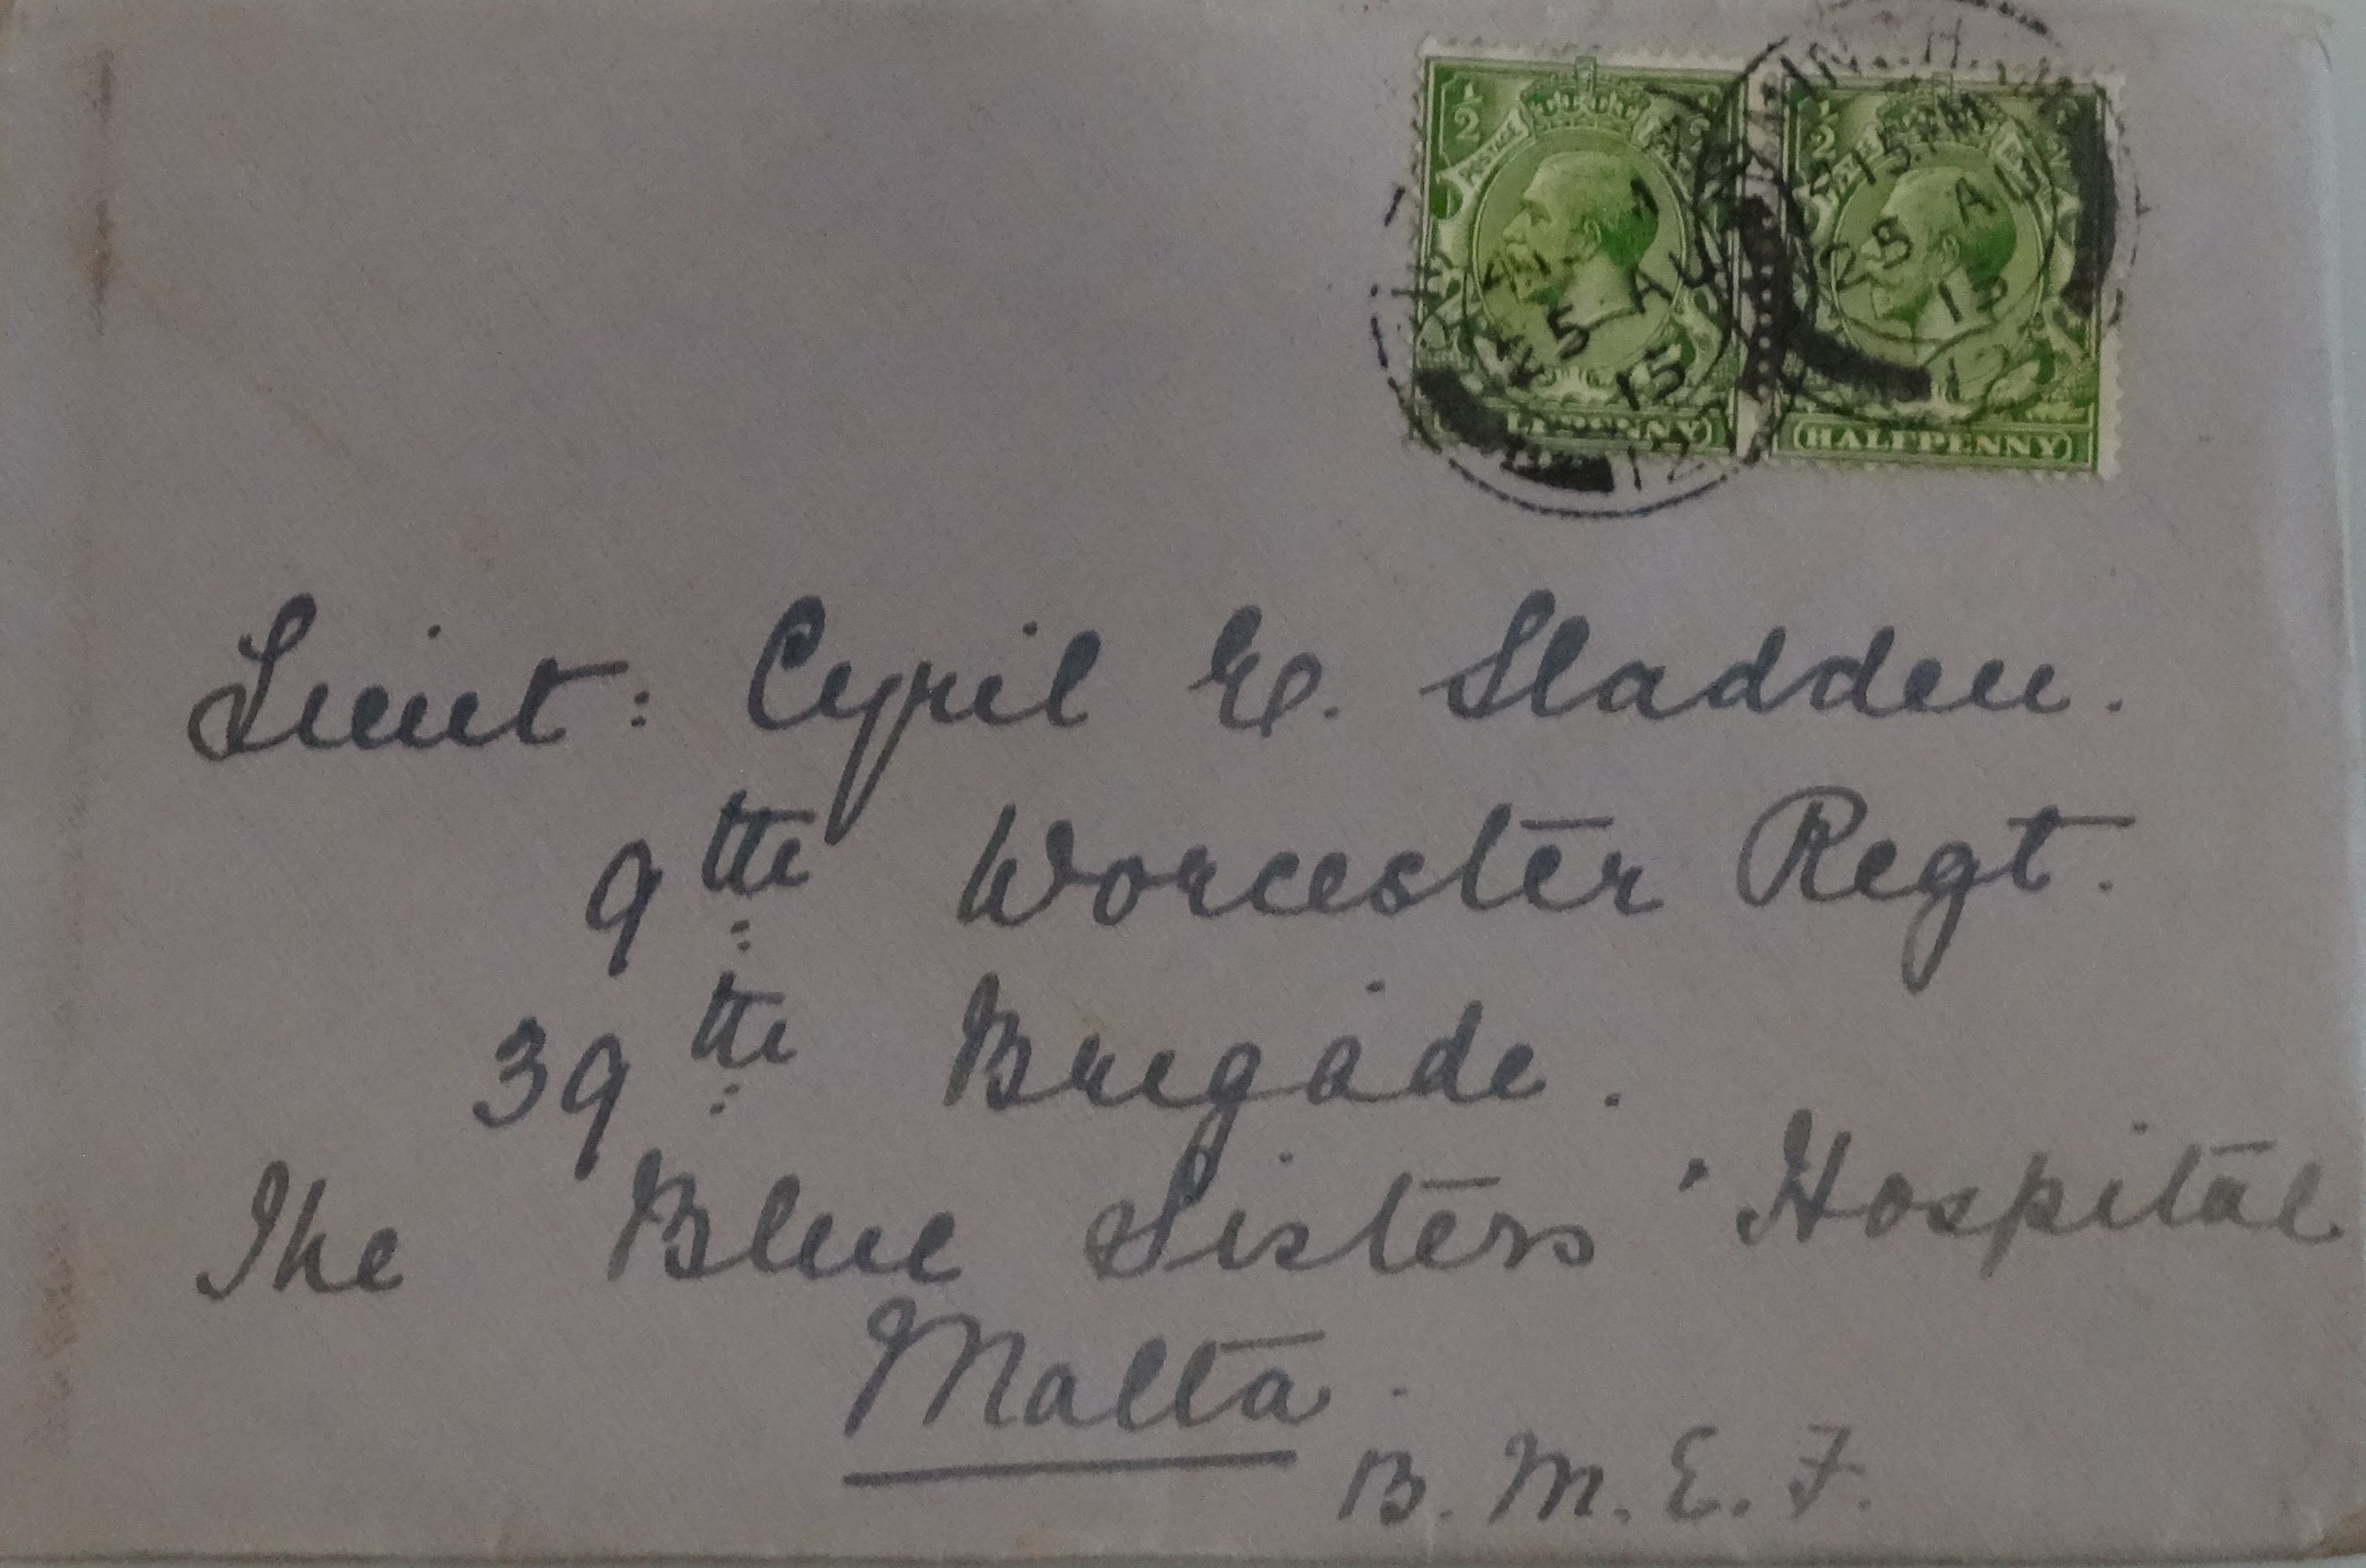 ½ ½
POSTAGE
15.PM
25 AU 25 AU
15 15
12 12
HALFPENNY
Lieut: Cyril E. Sladden.
9th Worcester Regt.
39th Brigade.
The Blue Sisters' Hospital
Malta.
B. M. E. F.